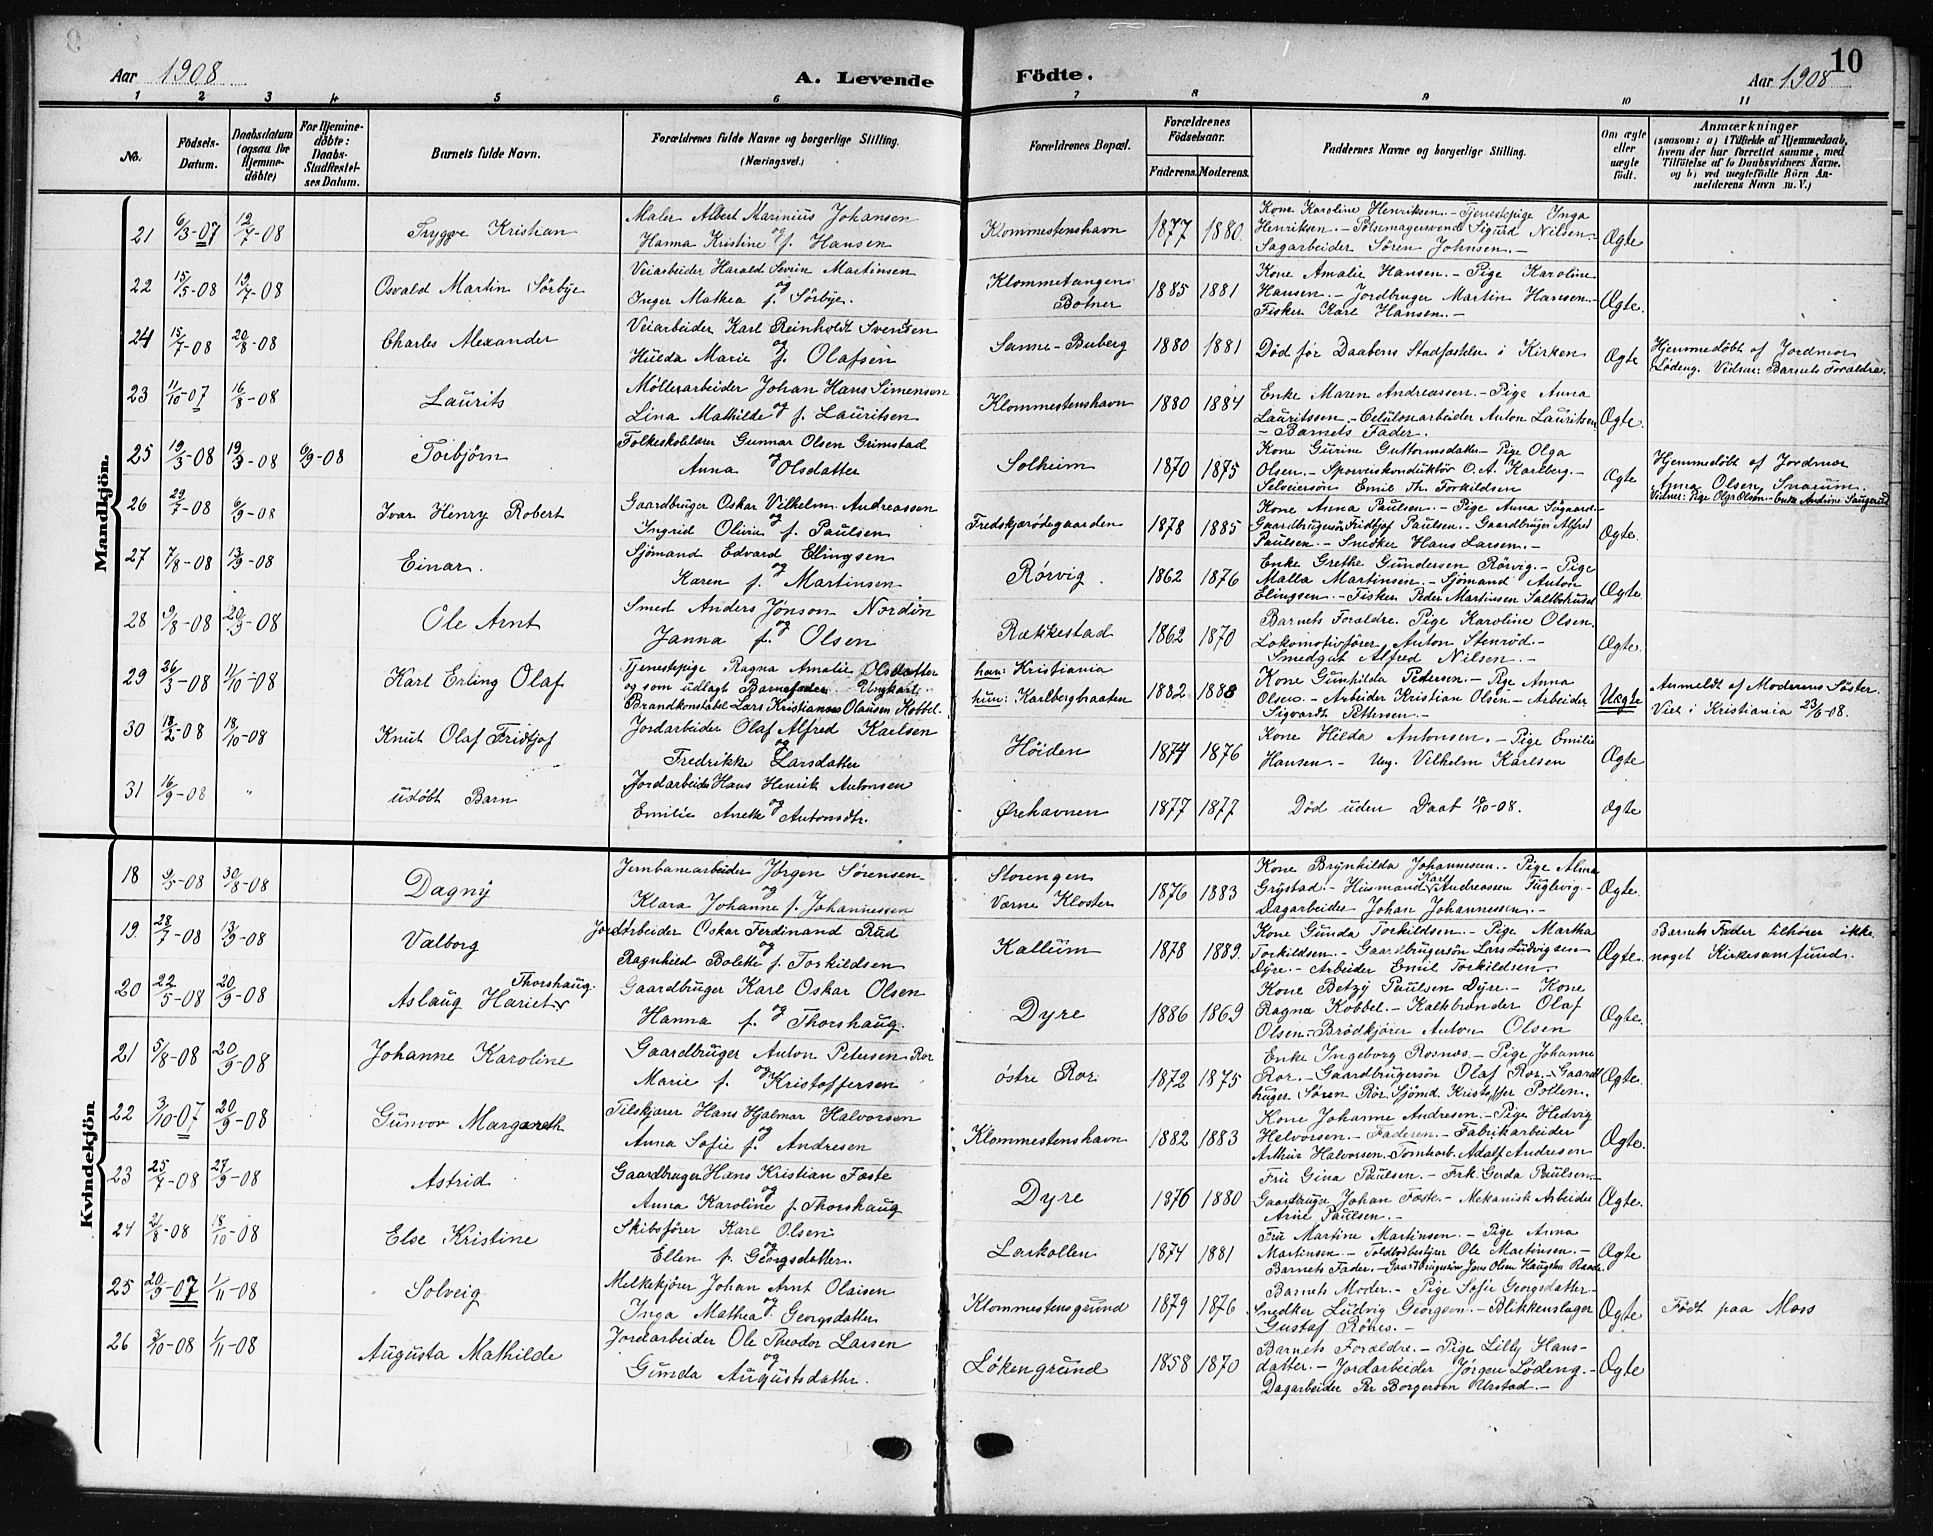 Aar 1908 A. Levende Födte. Aar 1908 10
1 2 3 4 5 6 7 8 9 10 11
No. Födsels-Datum. Daabsdatum (ogsaa for Hjemme-döbte) For Hjemme-döbte: Daabs-Stadfæstel-ses Datum. Barnets fulde Navn. Forældrenes fulde Navne og borgerlige Stilling. (Næringsvei.) Forældrenes Bopæl. Forældrenes Födselsaar. Faderens. Moderens. Faddernes Navne og borgerlige Stilling. Om ægte eller uægte födt. Anmærkninger (saasom: a) i Tilfælde af Hjemmedaab, hvem der har forrettet samme, med Tilföielse af to Daabsvidners Navne, og b) ved uægtefödte Börn An-melderens Navn m. V.)
Mandkjön.
21 6/3-07 12/7-08 Trygve Kristian Maler Albert Marinius Johansen og Hanna Kristine f. Hansen Klommestenshavn 1877 1880 Kone Karoline Henriksen.- Tjenestepige Inga Henriksen.- Pølsemagersvend Sigurd Nilsen.- Sagarbeider Søren Johnsen.- Ægte
22 15/5-08 19/7-08 Osvald Martin Sørbye Veiarbeider Harald Severin Martinsen og Inger Mathea f. Sørbye. Klommetangen Botner 1885 1881 Kone Amalie Hansen.- Pige Karoline Hansen.- Jordbruger Martin Hansen.- Fisker Karl Hansen.- Ægte.
24 15/7-08 20/8-08 Charles Alexander Veiarbeider Karl Reinholdt Svensen og Hulda Marie f. Olafsen Sanne-Buberg 1880 1881 Død før Daabens Stadfæstelse i Kirken Ægte Hjemmedøbt af Jordmor Lødeng. Vidner: Barnets Forældre.
23 11/10-07 16/8-08 Laurits Møllerarbeider Johan Hans Simensen og Lina Mathilde f. Lauritsen Klommestenshavn 1880 1884 Enke Maren Andreassen.- Pige Anna Lauritssen.- Celulosearbeider Anton Lauritsen.- Barnets Fader. Ægte.
25 19/3-08 19/3-08 6/9-08 Torbjørn Folkeskolelærer Gunnar Olsen Grimstad og Anna Olsdatter Solheim 1870 1875 Kone Gurine Guttormsdatter- Pige Olga Olsen.- Sporveiskonduktør O. A. Karlberg.- Selveiersøn Emil Th. Torkildsen Ægte Hjemmedøbt af Jordmor Anna Olsen, Snarum. Vidner: Pige Olga Olsen.- Enke Andrine Saugerud
26 29/7-08 6/9-08 Ivar Henry Robert Gaardbruger Oskar Vilhelm Andreassen og Ingrid Olivia f. Paulsen Fredskjærødegaarden 1878 1885 Kone Anna Paulsen.- Pige Anna Søgaard.- Gaardbrugersøn Fridtjof Paulsen.- Gaardbruger Alfred Paulsen.- Snedker Hans Larsen.- Ægte.
27 7/8-08 13/9-08 Einar. Sjömand Edvard Ellingsen og Karen f. Martinsen Rörvig. 1862 1876 Enke Grethe Gundersen Rörvig.- Pige Malla Martinsen.- Sjömand Anton Elingsen.- Fisker Peder Martinsen Saltbohuset Ægte.
28 9/8-08 20/9-08 Ole Arnt Smed Anders Jönson Nordin og Janna f. Olsen Rækkestad 1862 1870 Barnets Forældre. Pige Karoline Olsen. Lokomotivfører Anton Stenrød.- Smedgut Alfred Nilsen.- Ægte.
29 26/3-08 11/10-08 Karl Erling Olaf Tjenestepige Ragna Amalie Olsdatter og som udlagt Barnefader Ungkarl Brandkonstabel Lars Kristiansen Olausen Kobbel. han: Kristiania hun: Karlbergbraaten 1882 1888 Kone Gunhilda Pedersen.- Pige Anna Olsen.- Arbeider Kristian Olsen- Arbeider Sigvardt Pettersen.- Uægte Anmeldt af Moderens Søster. Viet i Kristiania 23/6-08.
30 18/2-08 18/10-08 Knut Olaf Fridtjof Jordarbeider Olaf Alfred Karlsen og Fredrikke Larsdatter Höiden 1874 1876 Kone Hilda Antonsen.- Pige Emilie Hansen.- Ung. Vilhelm Karlsen Ægte
31 16/9-08 " udøbt Barn Jordarbeider Hans Henrik Antonsen og Emilie Anette Antonsdtr. Ørehavnen 1877 1877 Død uden Daab 10/10-08. Ægte
Kvindekjön
18 9/5-08 30/8-08 Dagny Jernbanearbeider Jørgen Sørensen og Klara Johanne f. Johannessen Storengen Værne Kloster 1876 1883 Kone Brynhilda Johannessen.- Pige Alma Grystad.- Husmand Karl Andreassen Fuglevig- Dagarbeider Johan Johannessen.- Ægte.
19. 28/7-08 13/9-08 Valborg Jordarbeider Oskar Ferdinand Rud og Ragnhild Bolette f. Torkildsen Kallum 1878 1889. Kone Gunda Torkildsen.- Pige Martha Torkildsen.- Gaardbrugersön Lars Ludvigsen Dyre.- Arbeider Emil Torkildsen Ægte. Barnets Fader tilhører ikke noget Kirkesamfund.
20 22/5-08 20/9-08 Aslaug Hariet Thorshaug. Gaardbruger Karl Oskar Olsen og Hanna f. Thorshaug. Dyre 1886 1869 Kone Betzy Paulsen Dyre.- Kone Ragna Kobbel.- Kalkbrænder Olaf Olsen.- Brödkjører Anton Olsen Ægte.
21 5/8-08 20/9-08 Johanne Karoline Gaardbruger Anton Petersen Ror og Marie f. Kristoffersen østre Ror 1872 1875 Enke Ingeborg Rosnæs.- Pige Johanne Ror.- Gaardbrugersøn Olaf Ror.- Gaardbruger Søren Rör. Sjömd. Kristoffer Pollen. Ægte.
22 3/10-07 20/9-08 Gunvor Margareth Tilskjærer Hans Hjalmar Halvorsen og Anna Sofie f. Andresen Klommestenshavn 1882 1883 Kone Johanne Andresen.- Pige Hedvig Helvorsen.- Faderen.- Fabrikarbeider Arthur Halvorsen.- Tomtearb. Adolf Andresen Ægte.
23 25/7-08 27/9-08 Astrid Gaardbruger Hans Kristian Faste og Anna Karoline f. Thorshaug Dyre 1876 1880 Fru Gina Paulsen.- Frk. Gerda Paulsen Gaardbruger Johan Faste.- Mekanisk Arbeider Arne Paulsen.- Ægte.
24 2/8-08 18/10-08 Else Kristine Skibsfører Karl Olsen og Ellen f. Georgsdatter. Larkollen 1874 1881 Fru Martine Martinsen.- Pige Anna Martinsen.- Toldbodbestyrer Ole Martinsen.- Barnets Fader.- Gaardbrugersøn Jens Olsen Haugsten Raade. Ægte
25 20/9-07 1/11-08 Solveig Melkekjører Johan Arnt Olaisen og Inga Mathea f. Georgsdatter Klommestensgrund 1879 1876 Barnets Moder.- Pige Sofie Georgsdatter.- Snedker Ludvig Georgsen.- Blikkenslager Gustaf Rønes.- Ægte Født paa Moss
26 3/10-08 1/11-08 Augusta Mathilde Jordarbeider Ole Theodor Larsen og Gunda Augustsdatter. Løkengrund 1858 1870 Barnets Forældre.- Pige Lilly Hansdatter.- Jordarbeider Jørgen Lødeng.- Dagarbeider Per Borgersen Ulrstad.- Ægte